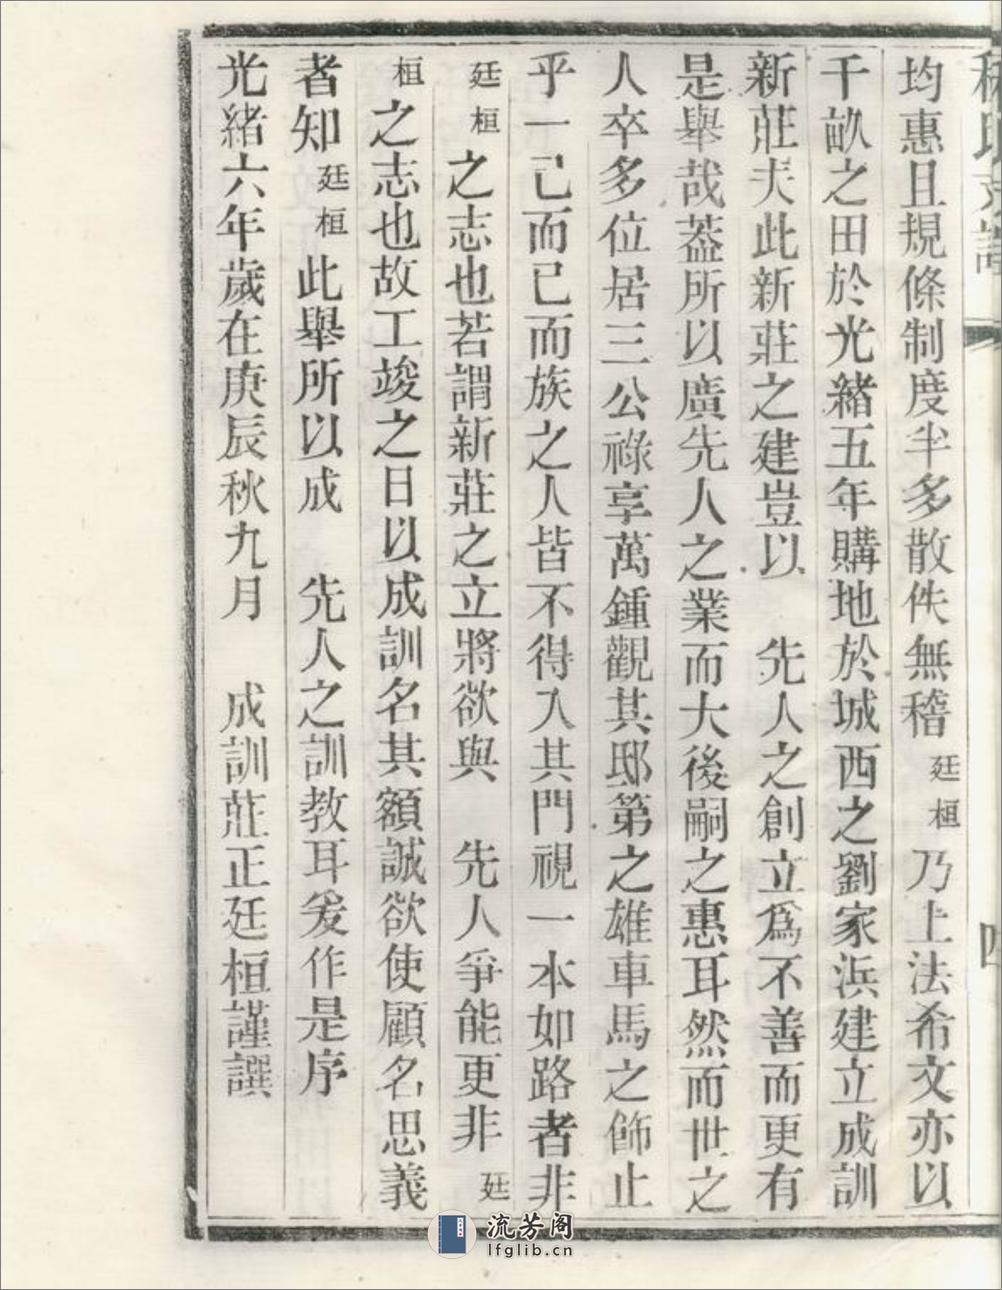 均惠且規條制度半多散佚無稽廷桓乃上法希文亦以
千畝之田於光緒五年購地於城西之劉家浜建立成訓
新莊夫此新莊之建豈以　先人之創立爲不善而更有
是舉哉葢所以廣先人之業而大後嗣之惠耳然而世之
人卒多位居三公祿享萬鍾觀其邸第之雄車馬之飾止
乎一己而已而族之人皆不得入其門視一本如路者非
廷桓之志也若謂新莊之立將欲與　先人爭能更非廷
桓之志也故工竣之日以成訓名其額誠欲使顧名思義
者知廷桓此舉所以成　先人之訓教耳爰作是序
光緒六年歲在庚辰秋九月　成訓莊正廷桓謹譔
流芳阁
lfglib.cn